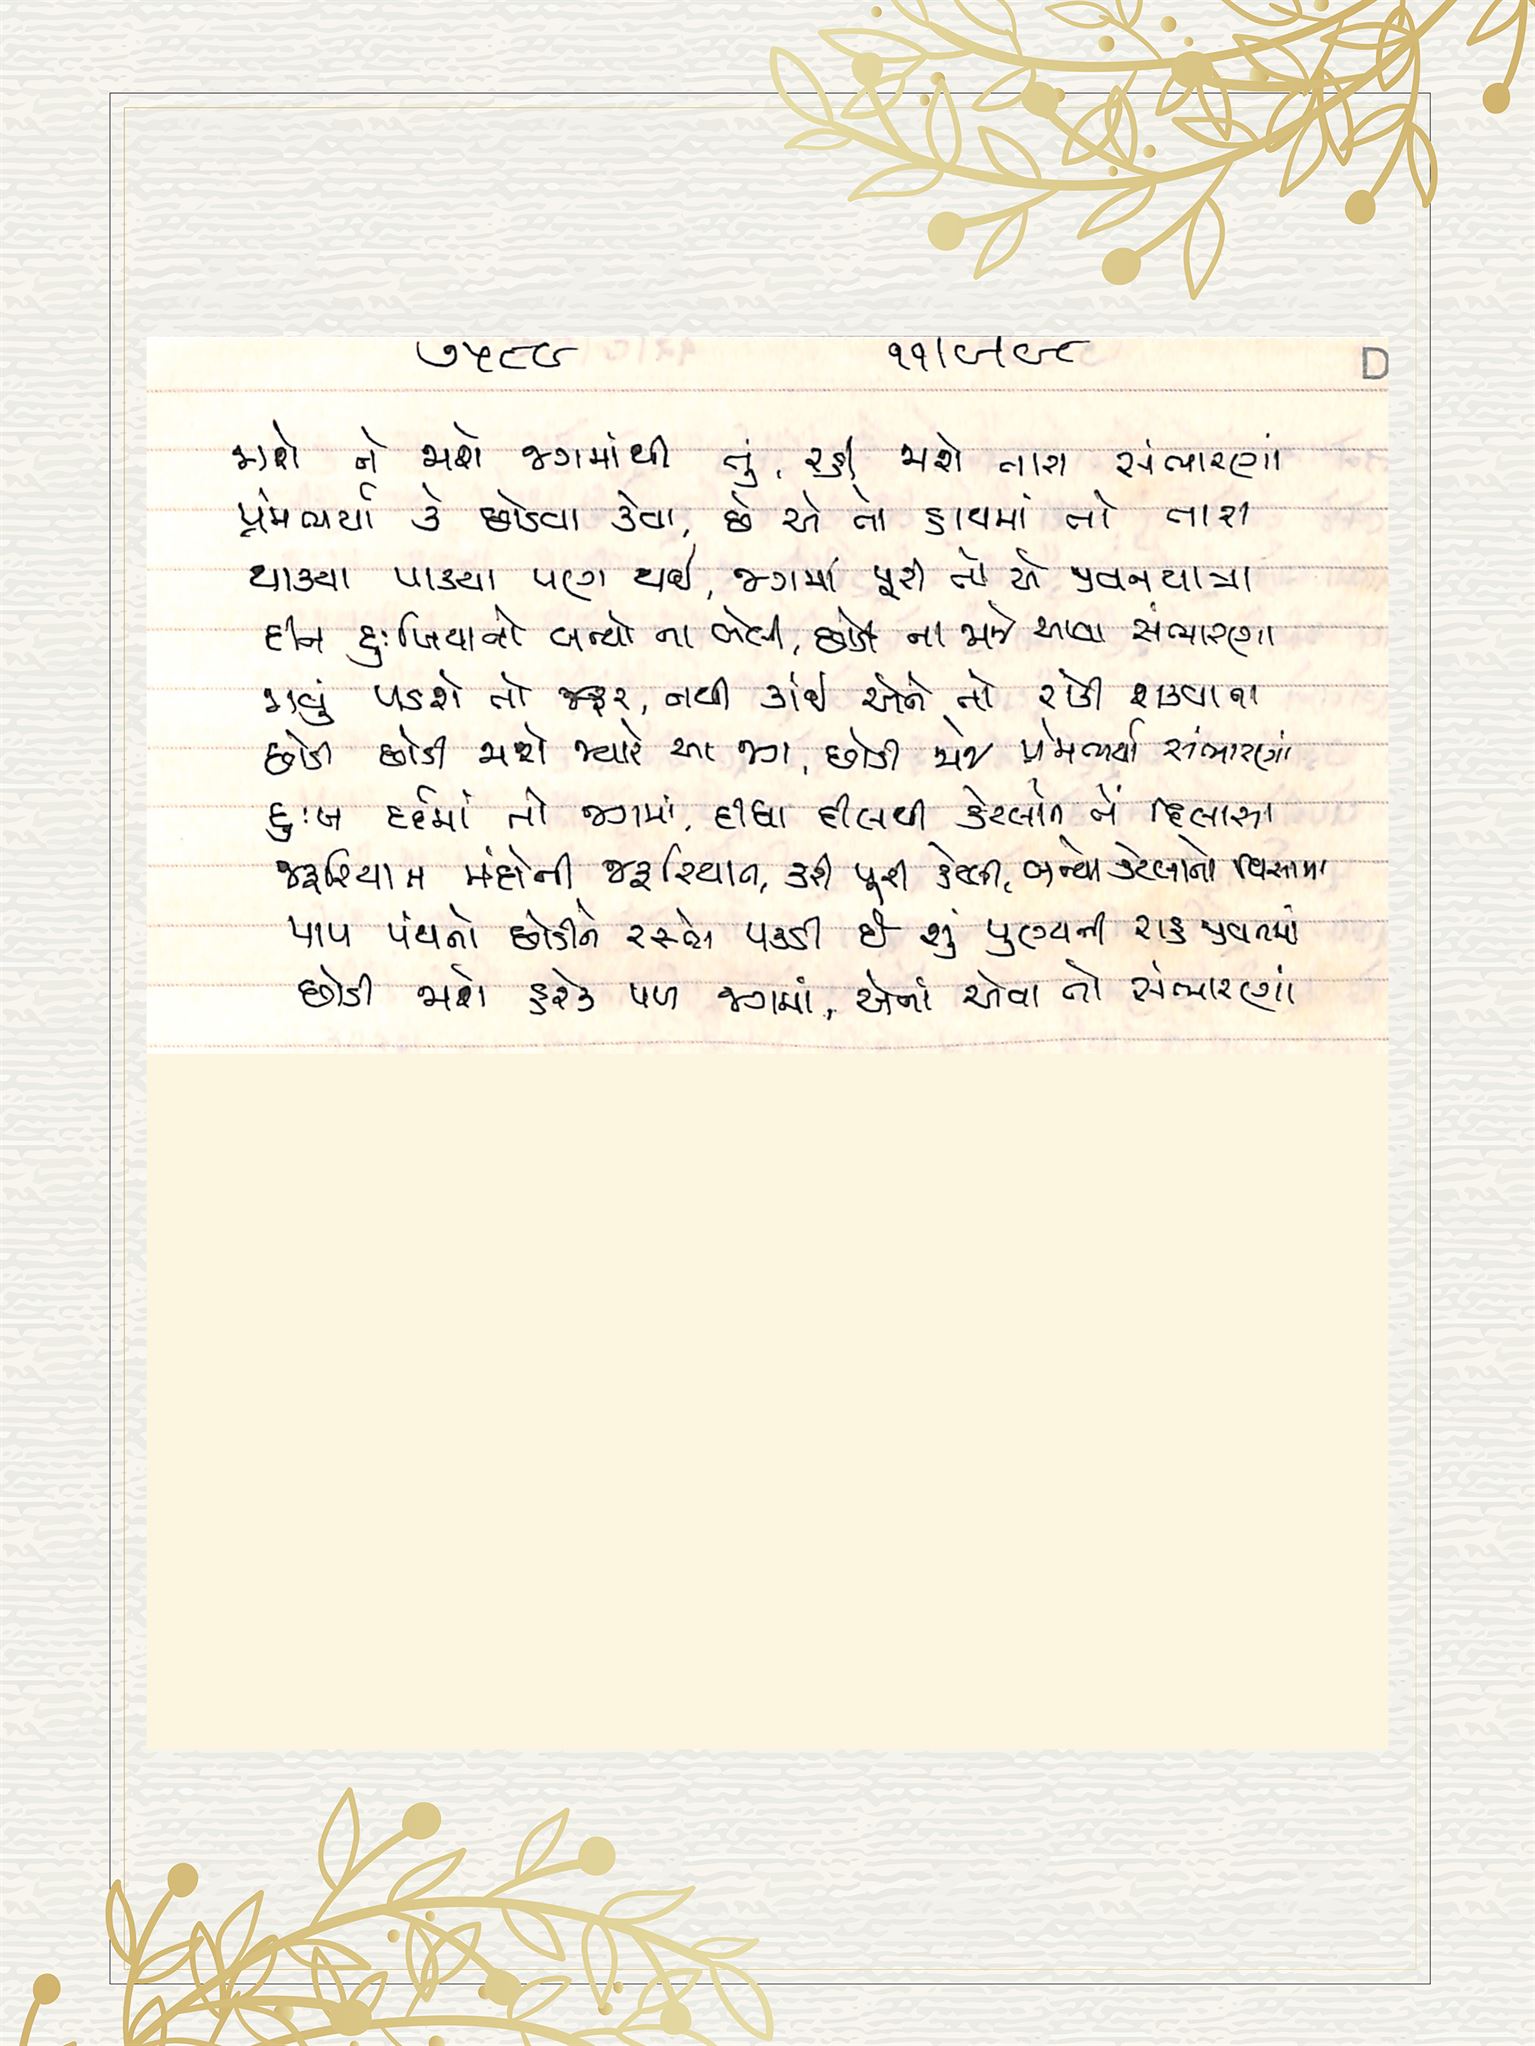 ૭૫૯૮ ૧૧/૯/૯૮ D
જાશે ને જાશે જગમાંથી તું, રહી જાશે તારા સંભારણાં
પ્રેમભર્યા કે છોડવા કેવા, છે એ તો હાથમાં તો તારા
થાક્યા પાક્યા પણ થઈ, જગમાં પૂરી તો એ જીવનયાત્રા
દીન દુઃખિયાનો બન્યો ના બેલી, છોડી ના જાજે આવા સંભારણા
જાવું પડશે તો જરૂર, નથી કાંઈ એને તો રોકી શકવાના
છોડી છોડી જાશે જ્યારે આ જગ, છોડી જજે પ્રેમભર્યા સંભારણાં
દુઃખ દર્દમાં તો જગમાં, દીધા દીલથી કેટલાંને તેં દિલાસા
જરૂરિયાત મંદોની જરૂરિયાત, કરી પૂરી કેટલી, બન્યો કેટલાનો વિસામા
પાપ પંથનો છોડીને રસ્તો પકડી છે શું પુણ્યની રાહ જીવનમાં
છોડી જાશે હરેક પળ જગમાં, એનાં એવા તો સંભારણાં